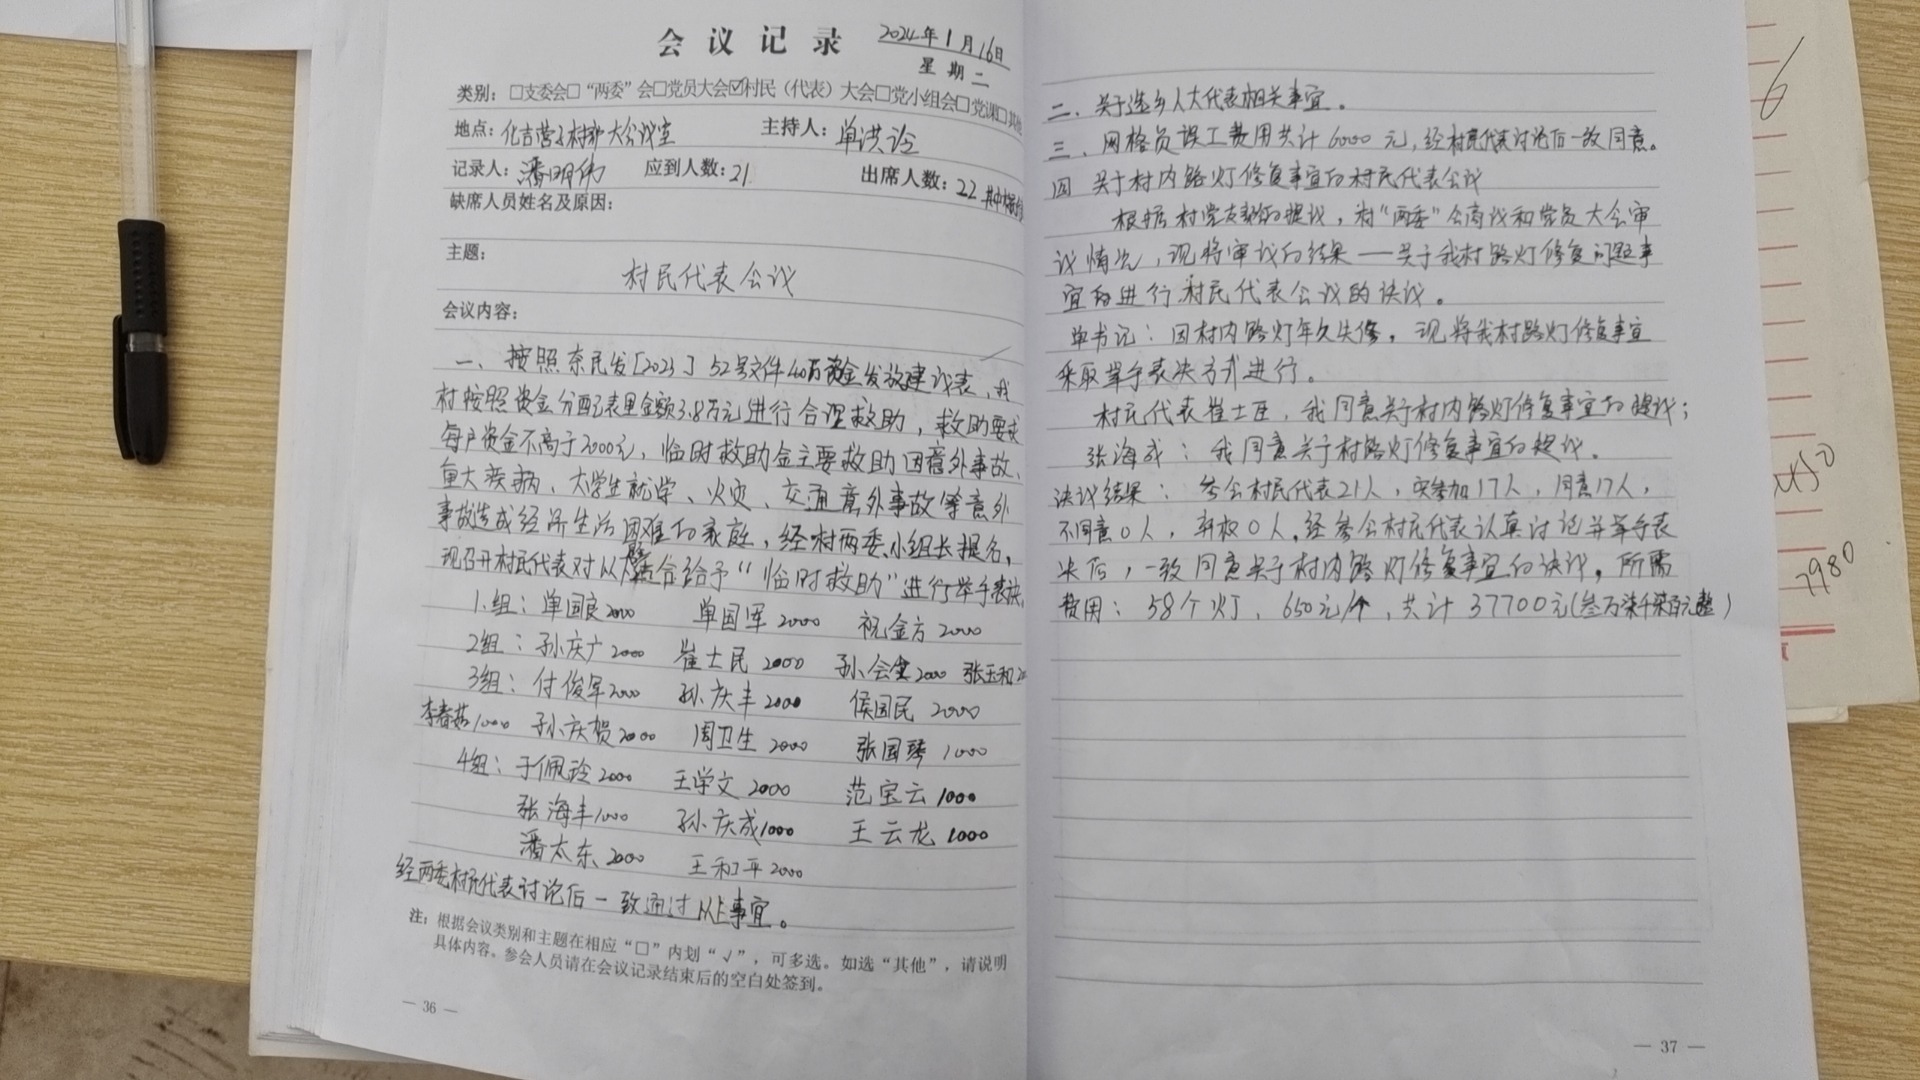 会议记录
2024年1月16日
星期二
类别：□支委会□“两委”会□党员大会☑村民（代表）大会□党小组会□党课□其他
地点：化吉营子村部大会议室 主持人：单洪
记录人：潘明伟 应到人数：21 出席人数：22 其中
缺席人员姓名及原因：
主题：
村民代表会议
会议内容：
一、按照奈民发[2023]52号文件40万资金发放建议表，我
村按照资金分配表里金额3.8万元进行合理救助，救助要求
每户资金不高于2000元，临时救助金主要救助因意外事故、
重大疾病、大学生就学、火灾、交通意外事故等意外
事故造成经济生活困难的家庭，经村两委、小组长提名，
现召开村民代表对以给予“临时救助”进行举手表决
1.组：单国良2000 单国军2000 祝金方2000
2组：孙庆广2000 崔士民2000 孙会2000 张玉和20
3组：付俊军2000 孙庆丰2000 侯国民2000
李春1000 孙庆贺2000 周卫生2000 张国琴1000
4组：于佩玲2000 王学文2000 范宝云1000
张海丰1000 孙庆成1000 王云龙1000
潘太东2000 王和平2000
经两委村民代表讨论后一致通过以上事宜。
注：根据会议类别和主题在相应“□”内划“√”，可多选。如选“其他”，请说明
具体内容。参会人员请在会议记录结束后的空白处签到。
— 36 —
二、关于选乡人大代表相关事宜。
三、网格员误工费用共计6000元，经村民代表讨论后一致同意。
四 关于村内路灯修复事宜的村民代表会议
根据村党支部的提议，村“两委”会商议和党员大会审
议情况，现将审议的结果——关于我村路灯修复问题事
宜的进行村民代表会议的决议。
单书记：因村内路灯年久失修，现将我村路灯修复事宜
采取举手表决方式进行。
村民代表崔士臣，我同意关于村内路灯修复事宜的提议；
张海成：我同意关于村路灯修复事宜的提议。
决议结果：参会村民代表21人，实参加17人，同意17人，
不同意0人，弃权0人。经参会村民代表认真讨论并举手表
决后，一致同意关于村内路灯修复事宜的决议，所需
费用：58个灯，650元/个，共计37700元(叁万柒千柒百元整)
— 37 —
6
450
7980